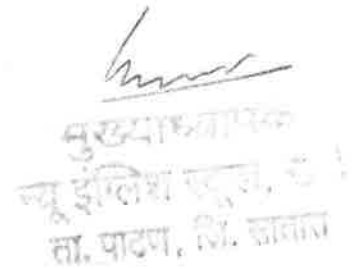 मुख्याध्यापक
न्यू इंग्लिश स्कूल,
ता. पाटण, जि. सातारा